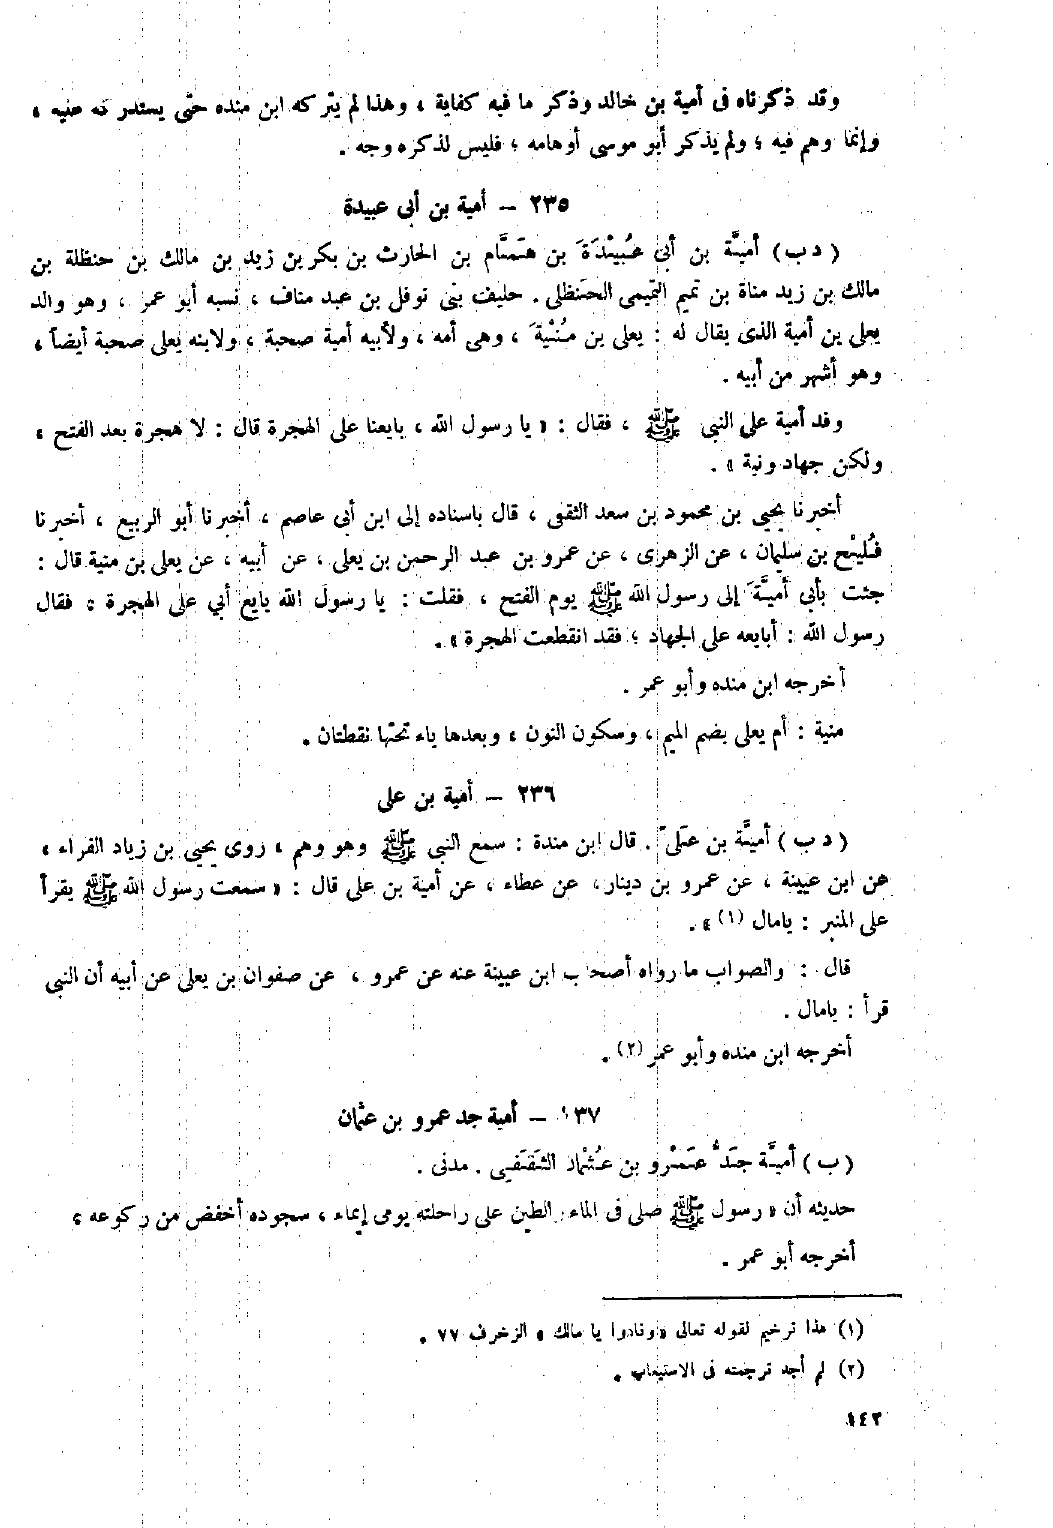 وقد ذكرناه فى أمية بن خالد وذكر ما فيه كفاية ، وهذا لم يتركه ابن منده حتى يستدركه عليه ،
وإنما وهم فيه ؛ ولم يذكر أبو موسى أوهامه ؛ فليس لذكره وجه .
٢٣٥ – أمية بن أبى عبيدة
( د ب ) أميَّة بن أبى عُبَيْدَةَ بن هَمَّام بن الحارث بن بكر بن زيد بن مالك بن حنظلة بن
مالك بن زيد مناة بن تميم التميمى الحَنظلى . حليف بنى نوفل بن عبد مناف ، نسبه أبو عمر ، وهو والد
يعلى بن أمية الذى يقال له : يعلى بن مُنْيةَ ، وهى أمه ، ولأبيه أمية صحبة ، ولابنه يعلى صحبة أيضاً ،
وهو أشهر من أبيه .
وفد أمية على النبى ﷺ ، فقال : « يا رسول الله ، بايعنا على الهجرة قال : لا هجرة بعد الفتح ،
ولكن جهاد ونية » .
أخبرنا يحيى بن محمود بن سعد الثقفى ، قال باسناده إلى ابن أبى عاصم ، أخبرنا أبو الربيع ، أخبرنا
فُلَيْح بن سليمان ، عن الزهرى ، عن عمرو بن عبد الرحمن بن يعلى ، عن أبيه ، عن يعلى بن منية قال :
جئت بأبى أميَّةَ إلى رسول الله ﷺ يوم الفتح ، فقلت : يا رسولَ الله بايع أبي على الهجرة ؛ فقال
رسول الله : أبايعه على الجهاد ؛ فقد انقطعت الهجرة » .
أخرجه ابن منده وأبو عمر .
منية : أم يعلى بضم الميم ، وسكون النون ، وبعدها ياء تحتها نقطتان .
٢٣٦ – أمية بن على
( د ب ) أميَّة بن عَلىّ . قال ابن مندة : سمع النبى ﷺ وهو وهم ، روى يحيى بن زياد الفراء ،
عن ابن عيينة ، عن عمرو بن دينار، عن عطاء ، عن أمية بن على قال : « سمعت رسول الله ﷺ يقرأ
على المنبر : يامال (١) » .
قال : والصواب ما رواه أصحاب ابن عيينة عنه عن عمرو ، عن صفوان بن يعلى عن أبيه أن النبى
قرأ : يامال .
أخرجه ابن منده وأبو عمر (٢) .
١٣٧ – أمية جد عمرو بن عثمان
( ب ) أميَّة جَدُّ عَمْرو بن عُثْمان الثَقَفيى . مدنى .
حديثه أن « رسول ﷺ صلى فى الماء والطين على راحلته يومى إيماء ، سجوده أخفض من ركوعه ؛
أخرجه أبو عمر .
(١) هذا ترخيم لقوله تعالى « ونادوا يا مالك » الزخرف ٧٧ .
(٢) لم أجد ترجمته فى الاستيعاب .
١٤٢